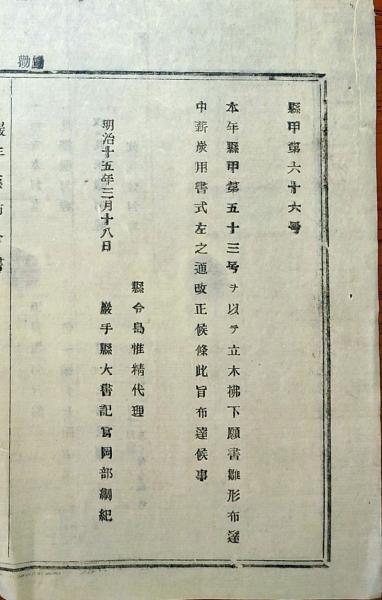 縣甲第六十六号
本年縣甲第五十三号ヲ以テ立木拂下願書雛形布達
中薪炭用書式左之通改正候條此旨布達候事
明治十五年三月十八日
縣令島惟精代理
巖手縣大書記官岡部綱紀